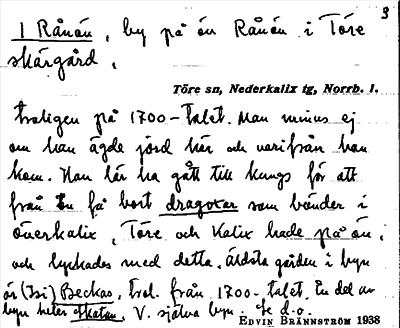 3
1 Rånön, by på ön Rånön i Töre
skärgård.
Töre sn, Nederkalix tg, Norrb. l.
troligen på 1700-talet. Man minns ej
om han ägde jord här och varifrån han
kom. Han lär ha gått till kungs för att
från ön få bort dragoxar som bönder i
Överkalix, Töre och Kalix hade på ön,
och lyckades med detta. Äldsta gården i byn
är (Isi) Beckas, trol. från 1700-talet. En del av
byn heter V. själva byn. Se d.o.
EDVIN BRÄNNSTRÖM 1938